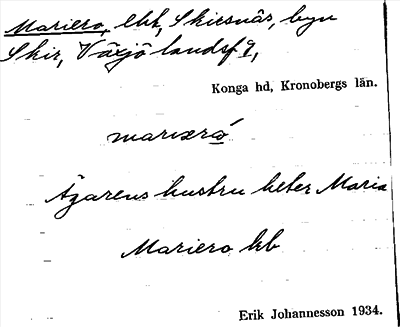 Mariero, lht, Skirsnäs, byn
Skir, Växjö landsfg,
Konga hd, Kronobergs län.
Ägarens hustru heter Maria
Mariero kb
Erik Johannesson 1934.